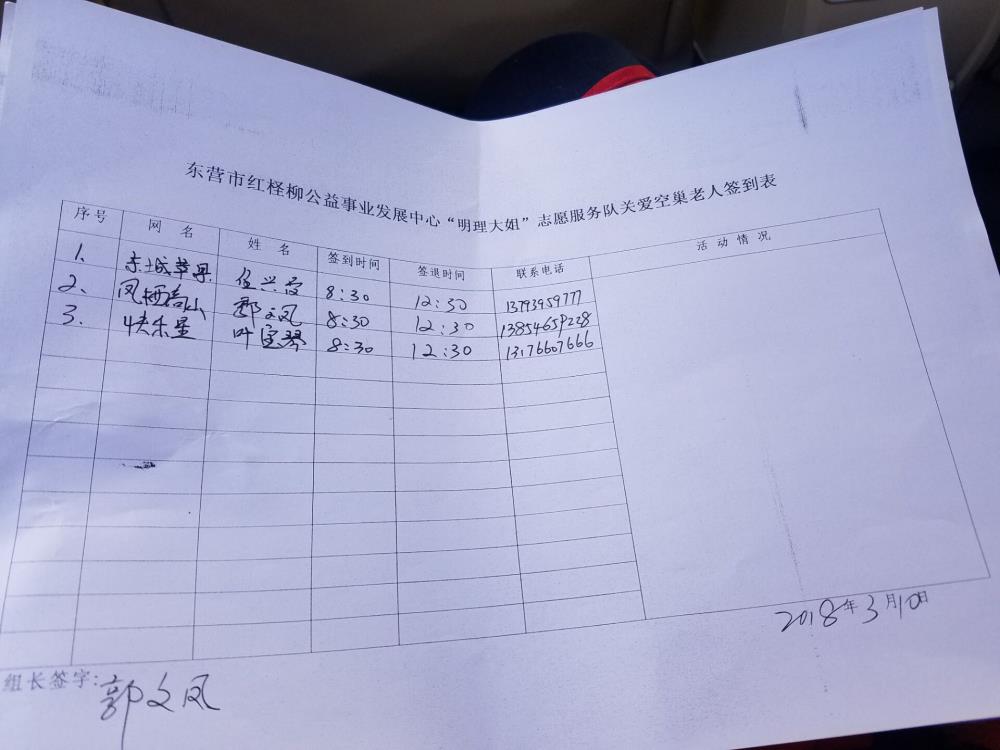 东营市红柽柳公益事业发展中心“明理大姐”志愿服务队关爱空巢老人签到表
序号 网名 姓名 签到时间 签退时间 联系电话 活动情况
1、 东城苹果 8:30 12:30 13793959777
2、 凤栖高山 郭文凤 8:30 12:30 13854659228
3、 快乐星 叶宝琴 8:30 12:30 13176607666
2018年3月10日
组长签字: 郭文凤